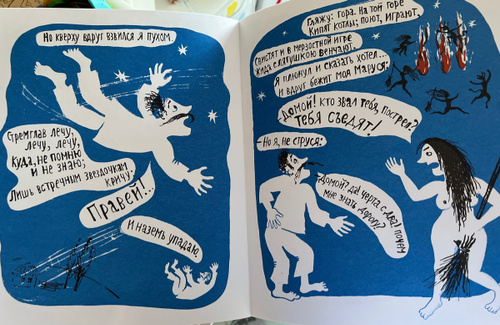 Но кверху вдруг взвился я пухом.
Стремглав лечу,
лечу, лечу,
Куда, не помню
и не знаю;
Лишь встречным звёздочкам
кричу:
Правей!...
И наземь упадаю.
Гляжу: гора. На той горе
Кипят котлы; поют, играют,
Свистят и в мерзостной игре
Жида с лягушкою венчают.
Я плюнул и сказать хотел...
И вдруг бежит моя Маруся:
Домой! кто звал тебя, пострел?
Тебя съедят!
Но я, не струся:
Домой? да! черта с два! почём
мне знать дорогу?